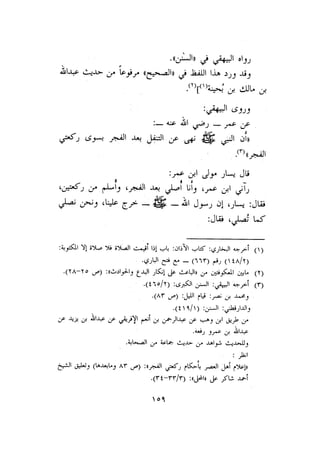 رواه البيهقي في «السنن».
وقد ورد هذا اللفظ في «الصحيح» مرفوعاً من حديث عبدالله
بن مالك بن بُحينة(١)](٢).
وروى البيهقي:
عن عمر ــ رضي الله عنه ــ:
«أن النبي ﷺ نهى عن التنفل بعد الفجر بسوى ركعتي
الفجر»(٣).
قال يسار مولى ابن عمر:
رآني ابن عمر، وأنا أصلي بعد الفجر، وأسلم من ركعتين،
فقال: يسار، إن رسول الله ــ ﷺ ــ خرج علينا، ونحن نصلي
كما تُصلي، فقال:
(١) أخرجه البخاري: كتاب الأذان: باب إذا أقيمت الصلاة فلا صلاة إلا المكتوبة:
(١٤٨/٢) رقم (٦٦٣) ــ مع فتح الباري.
(٢) مابين المعكوفتين من «الباعث على إنكار البدع والحوادث»: (ص ٢٥-٢٨).
(٣) أخرجه البيهقي: السنن الكبرى: (٤٦٥/٢).
ومحمد بن نصر: قيام الليل: (ص ٨٣)
والدارقطني: السنن: (٤١٩/١).
من طريق ابن وهب عن عبدالرحمن بن أنعم الإفريقي عن عبدالله بن يزيد عن
عبدالله بن عمرو رفعه.
وللحديث شواهد من حديث جماعة من الصحابة.
انظر :
«إعلام أهل العصر بأحكام ركعتي الفجر»: (ص ٨٣ ومابعدها) وتعليق الشيخ
أحمد شاكر على «المحلى»: (٣٣/٣-٣٤).
١٥٩